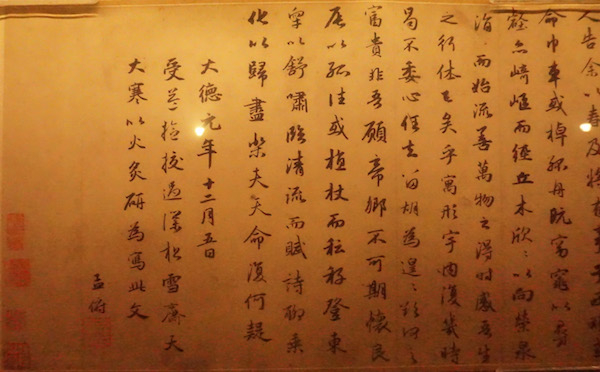 人告余以春及將有事乎西
命巾車或棹孤舟既窈窕以尋
壑亦崎嶇而經丘木欣〻以向榮泉
涓〻而始流善萬物之得時感吾生
之行休已矣乎寓形宇內復幾時
曷不委心任去留胡為遑〻欲何之
富貴非吾願帝鄉不可期懷良
辰以孤往或植杖而耘耔登東
皋以舒嘯臨清流而賦詩聊乘
化以歸盡樂夫天命復何疑
大德元年十二月五日
受益撿挍過僕松雪齋天
大寒以火炙研為寫此文
孟頫